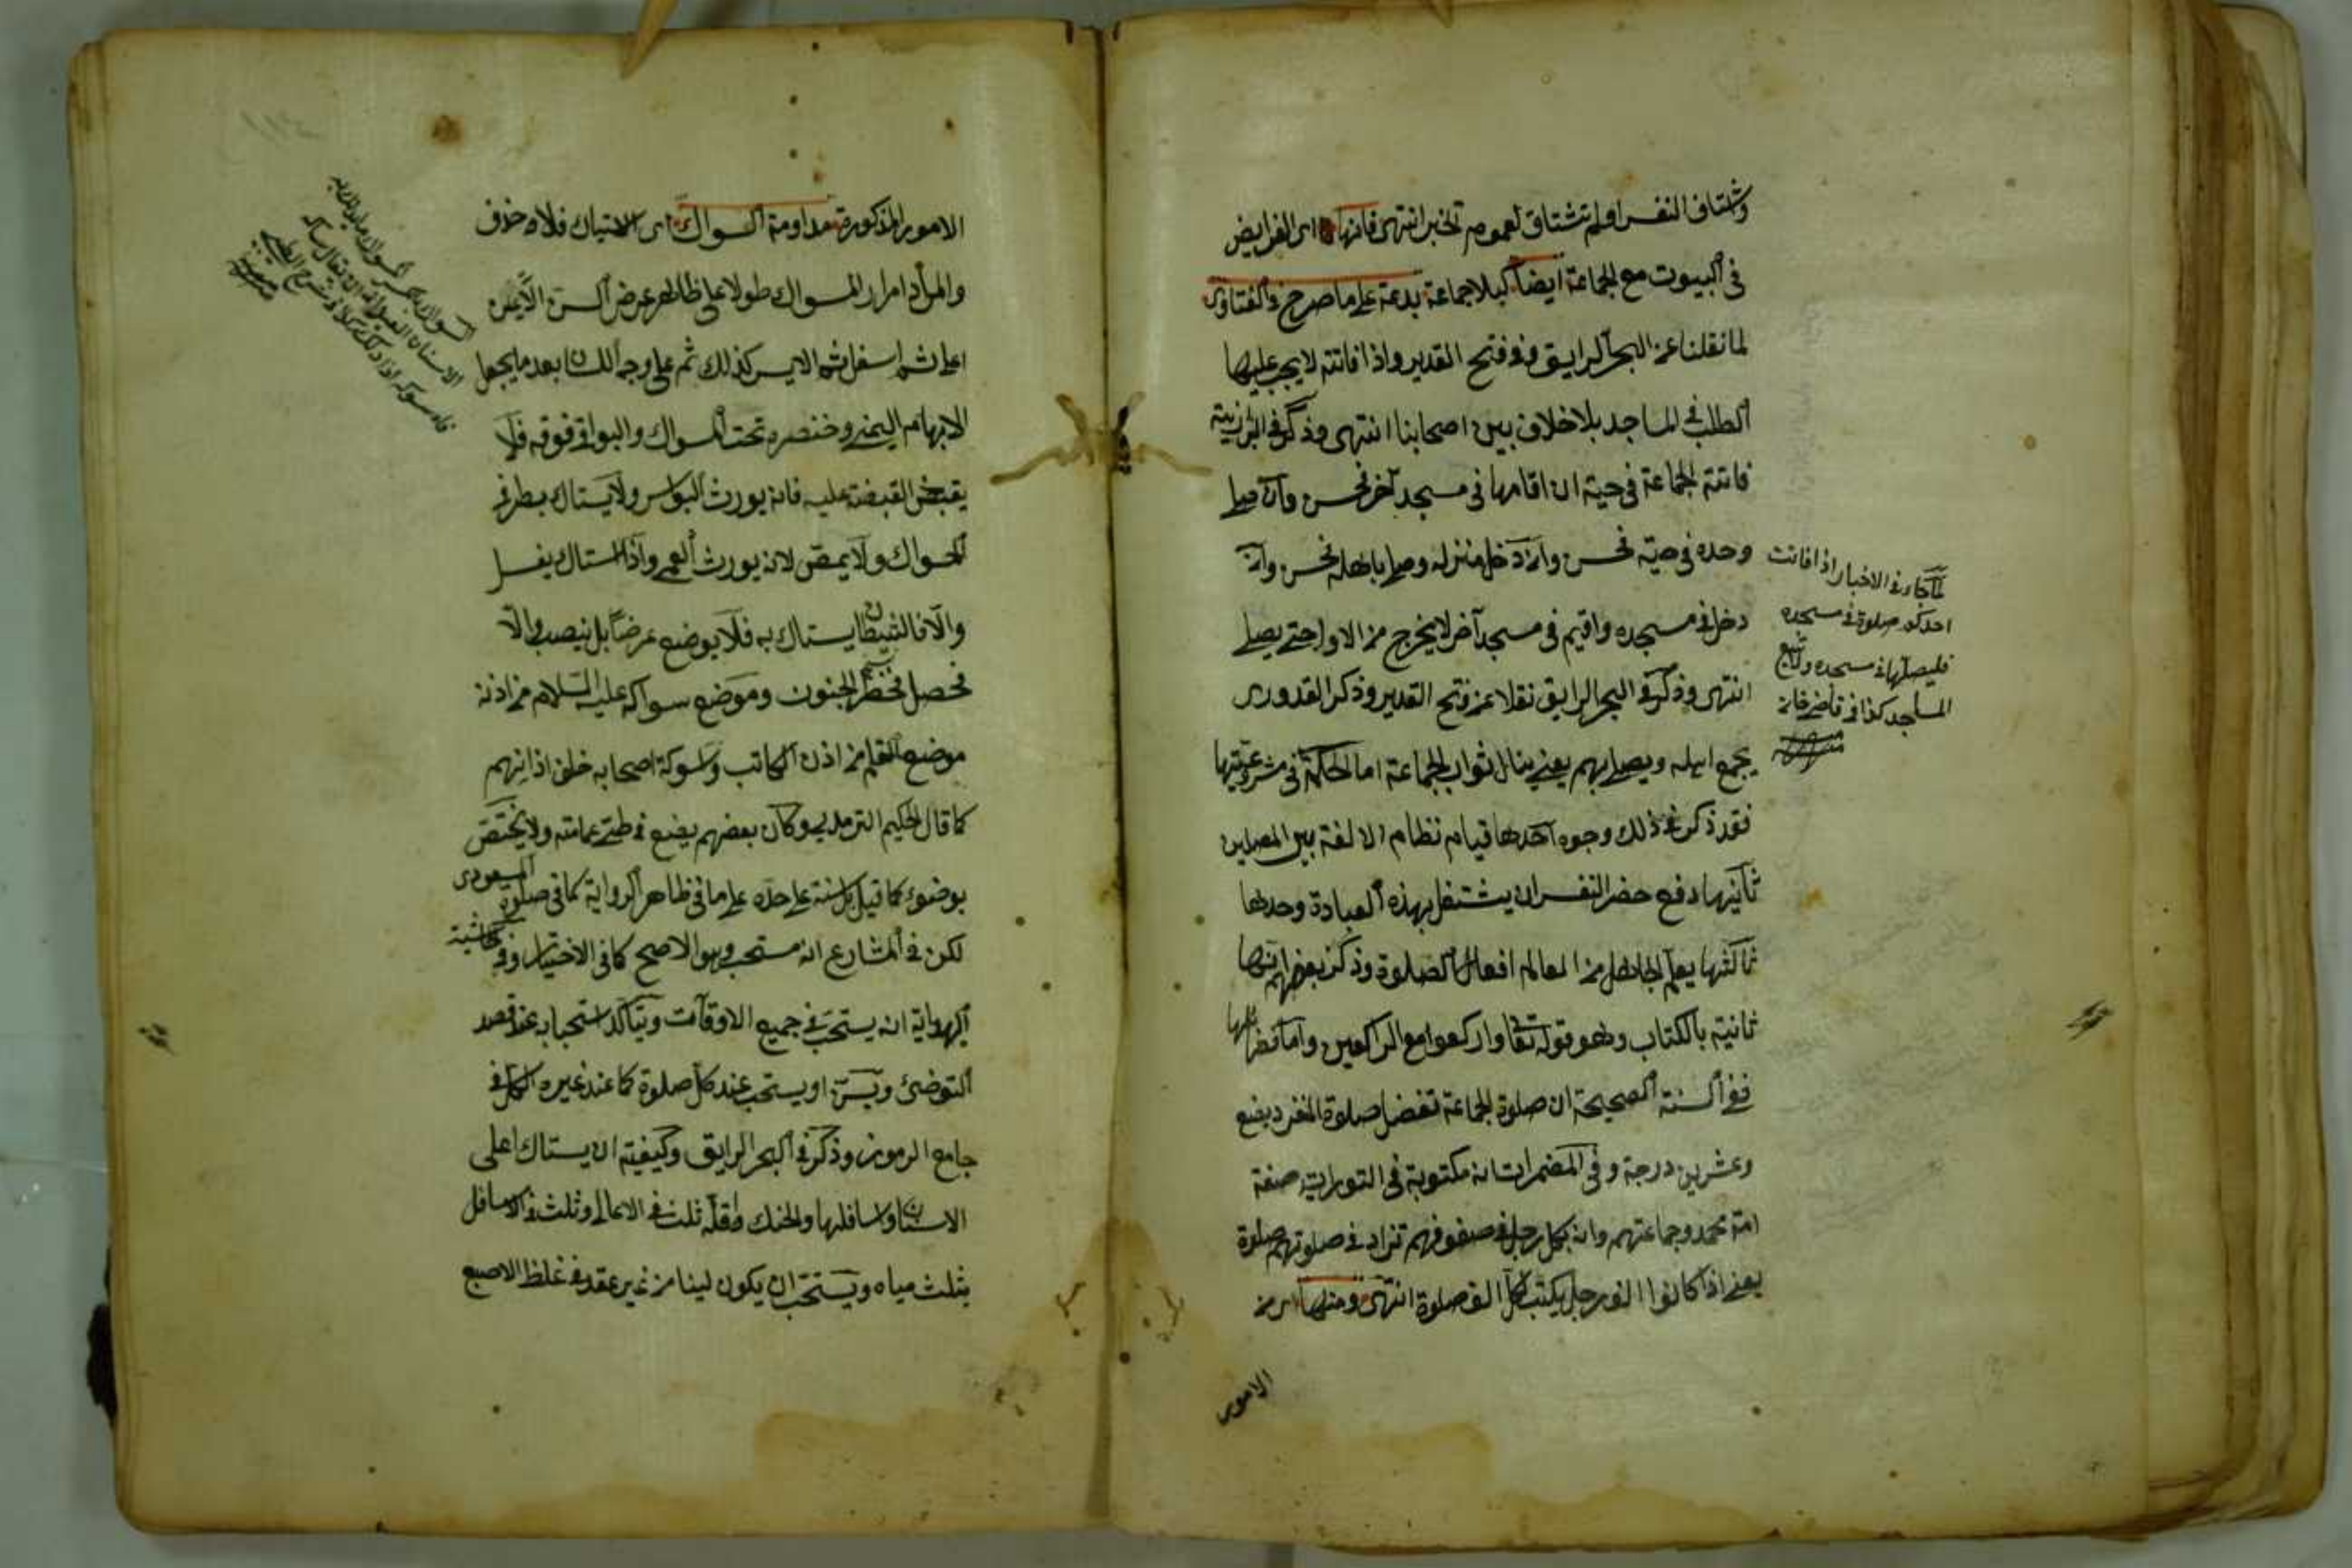 وتشتاق النفس او لم تشتاق لعموم الخبر انتهى فانها اى الفرايض
فى البيوت مع الجماعة ايضا كبلا جماعة بدعة على ما صرح فى الفتاوى
لما نقلنا عن البحر الرايق وفى فتح القدير واذا فاتته لا يجب عليها
الطلب فى المساجد بلا خلاف بين اصحابنا انتهى وذكر فى البزازية
فاتته الجماعة فى حيه ان اقامها فى مسجد آخر فحسن وان صلى
وحده فى حيه فحسن وان دخل منزله وصلى باهله فحسن وان
دخل فى مسجده واقيم فى مسجد آخر لا يخرج من الاول حتى يصلى
انتهى وذكر فى البحر الرايق نقلا عن فتح القدير وذكر القدورى
يجمع اهله ويصلى بهم يعنى ينال ثواب الجماعة اما الحكمة فى مشروعيتها
فقد ذكر فى ذلك وجوه احدها قيام نظام الالفة بين المصلين
ثانيها دفع حصر النفس ان يشتغل بهذه العبادة وحدها
ثالثها يعلم الجاهل من العالم افعال الصلوة وذكر بعضهم انها
ثابتة بالكتاب وهو قوله تعا واركعوا مع الراكعين واما فضلها
ففى السنة الصحيحة ان صلوة الجماعة تفضل صلوة المنفرد ببضع
وعشرين درجة وفى المضمرات انه مكتوبة فى التورات صفة
امة محمد وجماعتهم وانه بكل رجل فى صفوفهم تزاد فى صلوتهم صلوة
يعنى اذا كانوا الف رجل يكتب لكل الف صلوة انتهى ومنها اى من
الامور
لما جاء فى الاخبار اذا فاتت
احدكم صلوة فى مسجده
فليصلها فى مسجده ولا يتبع
المساجد كذا فى قاضيخان
الامور المذكورة مداومة السواك اى الاستياك فلا حذف
والمراد امرار المسواك طولا على ظاهر عرض السن الايمن
اعلى ثم اسفل ثم الايسر كذلك ثم على وجه اللسان بعد ما يجعل
الابهام اليمنى وخنصره تحت المسواك والبواقى فوقه فلا
يقبض القبضة عليه فانه يورث البواسر ولا يستاك بطرفى
المسواك ولا يمص لانه يورث العمى واذا استاك يغسل
والا فالشيطان يستاك به فلا يوضع عرضا بل ينصب والا
فحصل خطر الجنون وموضع سواكه عليه السلام من اذنه
موضع القلم من اذن الكاتب واسوكة اصحابه خلف اذانهم
كما قال الحكيم الترمذى وكان بعضهم يضع فى طى عمامته ولا يختص
بوضوء كما قيل بل سنة على حده على ما فى ظاهر الرواية كما فى صلوة المسعودى
لكن فى المشارع انه مستحب وهو الاصح كما فى الاختيار وفى حاشية
الهداية انه يستحب فى جميع الاوقات ويتأكد استحبابه عند قصد
التوضئ ويسن او يستحب عند كل صلوة كما عند غيره الكل فى
جامع الرموز وذكر فى البحر الرايق وكيفيته ان يستاك اعلى
الاسنان واسافلها والحنك واقله ثلث فى الاعالى وثلث فى الاسافل
بثلث مياه ويستحب ان يكون لينا من غير عقد فى غلظ الاصبع